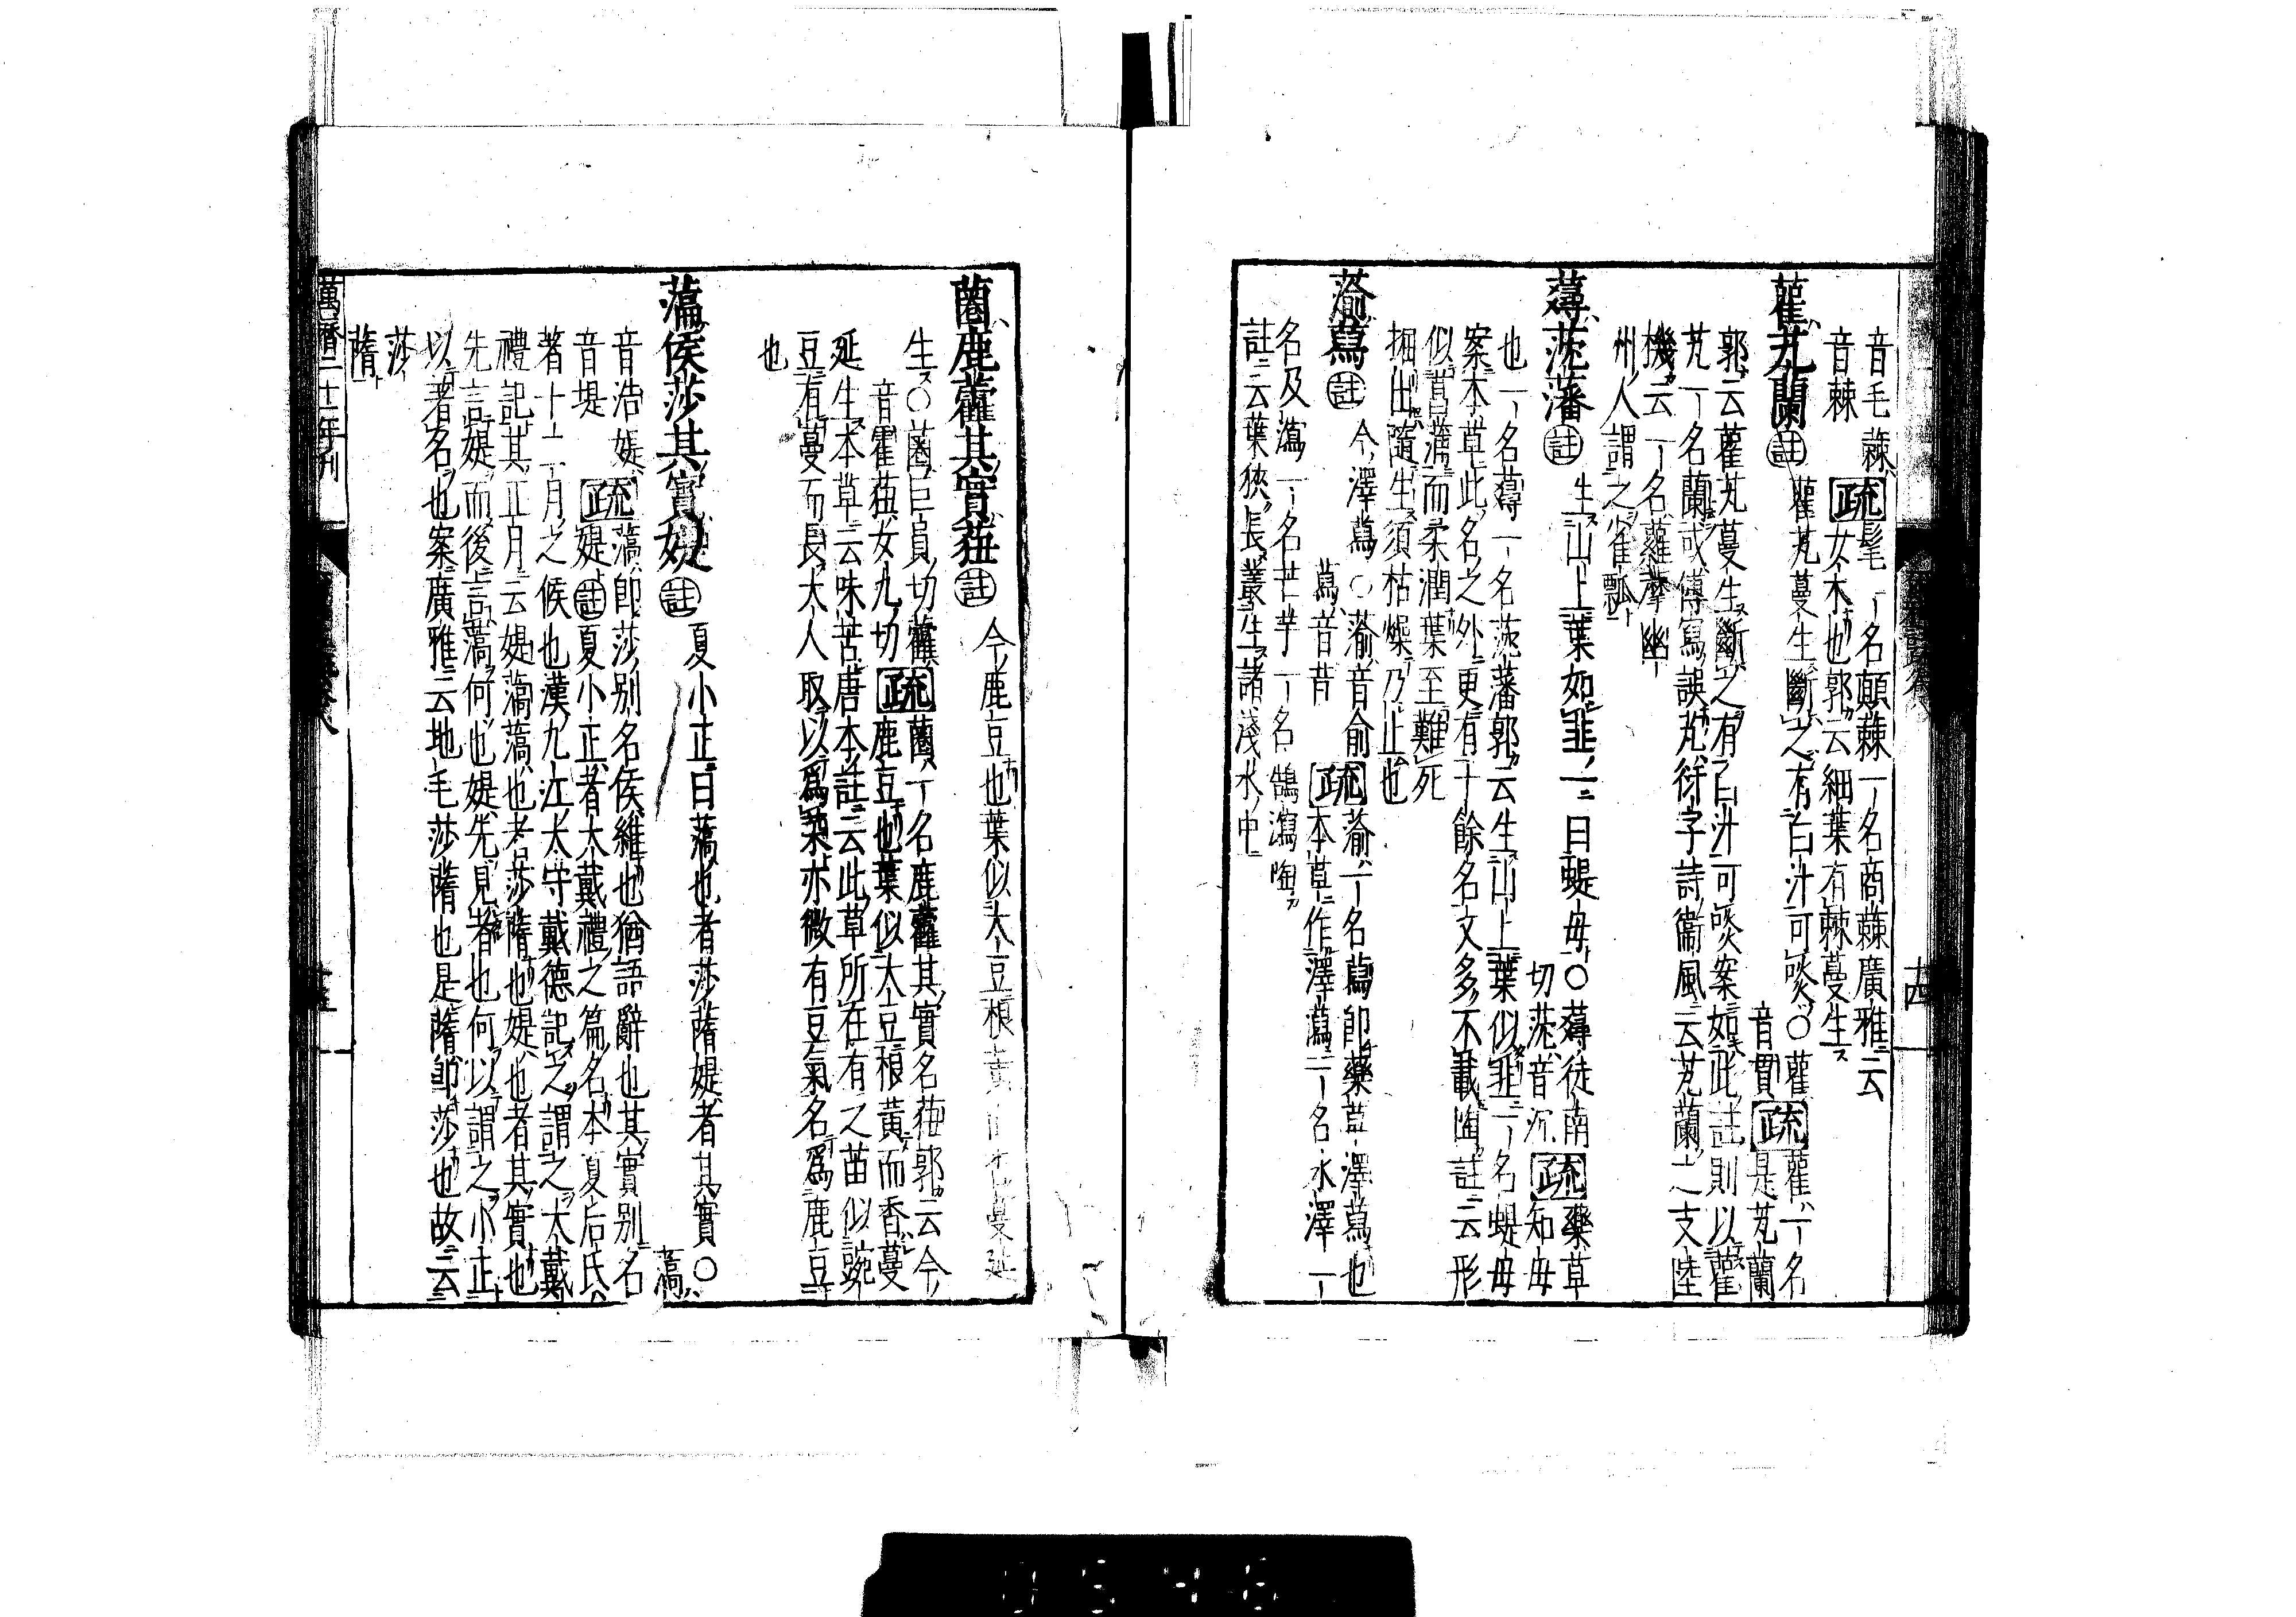 音毛
蕀
音棘
疏髦一名顛蕀一名商蕀廣雅云
女木也郭云細葉有蕀蔓生
雚芄蘭註雚芄蔓生斷之有白汁可啖○雚
音貫疏雚一名
是芄蘭
郭云雚芄蔓生斷之有白汁可啖案如此註則以雚
芄一名蘭或傳寫誤芄衍字詩衞風云芄蘭之支陸
機云一名蘿摩幽
州人謂之雀瓢
蕁莐藩註生山上葉如韭一曰蝭毋○蕁徒南
切莐音沉疏藥草
知毋
也一名蕁一名莐藩郭云生山上葉似韭一名蝭毋
案本草此名之外更有十餘名文多不載陶註云形
似菖蒲而柔潤葉至難死
掘出隨生須枯燥乃止也
蕍蕮註今澤蕮○蕍音俞
蕮音昔疏蕍一名蕮即藥草澤蕮也
本草作澤蕮一名水澤一
名及瀉一名芒芋一名鵠瀉陶
註云葉狹長叢生諸淺水中
十四
蔨鹿藿其實莥註今鹿豆也葉似大豆根黃而香蔓延
生○蔨巨員切藿
音霍莥女九切疏蔨一名鹿藿其實名莥郭云今
鹿豆也葉似大豆根黃而香蔓
延生本草云味苦唐本註云此草所在有之苗似豌
豆有蔓而長大人取以爲菜亦微有豆氣名爲鹿豆
也
薃侯莎其實媞註夏小正曰薃也者莎蓨媞者其實○
薃
音浩媞
音堤疏薃即莎別名侯維也猶語辭也其實別名
媞註夏小正者大戴禮之篇名本夏后氏
著十一月之候也漢九江太守戴德記之謂之大戴
禮記其正月云媞薃薃也者莎蓨也媞也者其實也
先言媞而後言薃何也媞先見者也何以謂之小正
以著名也案廣雅云地毛莎蓨也是蓨即莎也故云
莎
蓨
萬曆二十一年刊